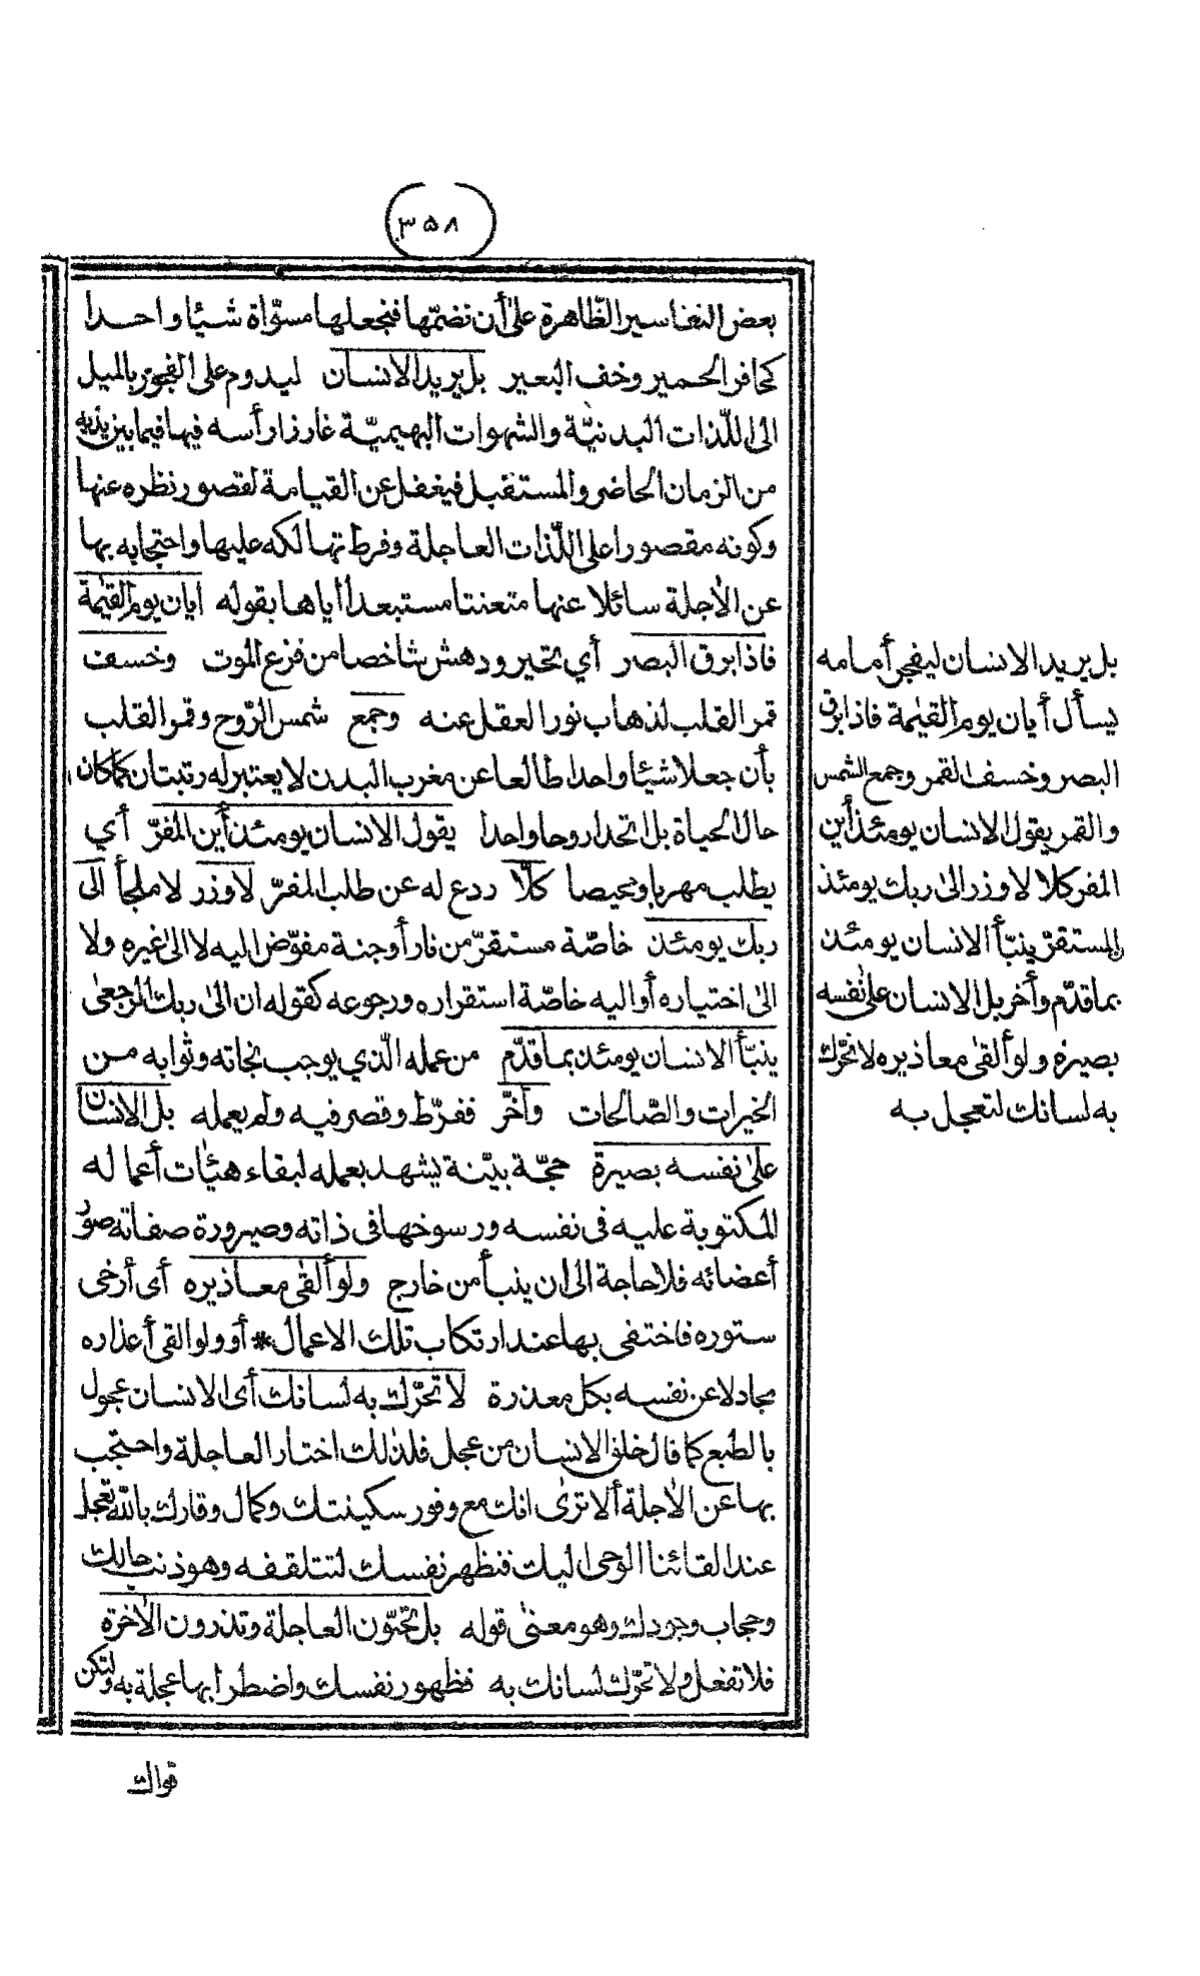 ٣٥٨
بعض التفاسير الظّاهرة على أن نضمّها فنجعلها مسوّاة شيئا واحدا
كحافر الحمير وخف البعير بل يريد الانسان ليدوم على الفجور بالميل
الى اللّذات البدنيّة والشهوات البهيميّة غارزا رأسه فيها فيما بين يديه
من الزمان الحاضر والمستقبل فيغفل عن القيامة لقصور نظره عنها
وكونه مقصورا على اللّذات العاجلة وفرط تهالكه عليها واحتجابه بها
عن الآجلة سائلا عنها متعنتا مستبعدا أياها بقوله أيان يوم القيٰمة
فاذا برق البصر أي تحير ودهش شاخصا من فزع الموت وخسف
قمر القلب لذهاب نور العقل عنه وجمع شمس الرّوح وقمر القلب
بأن جعلا شيئا واحدا طالعا عن مغرب البدن لا يعتبر له رتبتان كما كان
حال الحياة بل اتحدا روحا واحدا يقول الانسان يومئذ أين المفرّ أي
يطلب مهربا ومحيصا كلّا ردع له عن طلب المفرّ لا وزر لا ملجأ الى
ربك يومئذ خاصّة مستقرّ من نار أوجنة مفوّض اليه لا الى غيره ولا
الى اختياره أو اليه خاصّة استقراره ورجوعه كقوله ان الىٰ ربك الرجعىٰ
ينبّأ الانسان يومئذ بما قدّم من عمله الّذي يوجب نجاته وثوابه من
الخيرات والصّالحات وأخّر ففرّط وقصر فيه ولم يعمله بل الانسان
علىٰ نفسه بصيرة حجّة بيّنة يشهد بعمله لبقاء هيٰات أعماله
المكتوبة عليه فى نفسه ورسوخها فى ذاته وصيرورة صفاته صور
أعضائه فلا حاجة الى ان ينبأ من خارج ولو ألقىٰ معاذيره أى أرخى
ستوره فاختفى بها عند ارتكاب تلك الاعمال * أو ولو القى أعذاره
مجادلا عن نفسه بكل معذرة لا تحرّك به لسانك أى الانسان عجول
بالطبع كما قال خلق الانسان من عجل فلذلك اختار العاجلة واحتجب
بها عن الآجلة ألا ترىٰ انك مع وفور سكينتك وكمال وقارك باللّه تعجل
عند القائنا الوحى اليك فتظهر نفسك لتتلقفه وهو ذنب حالك
وحجاب وجودك وهو معنىٰ قوله بل تحبّون العاجلة وتذرون الآخرة
فلا تفعل ولا تحرّك لسانك به فظهور نفسك واضطرابها عجلة به ولتكن
قواك
بل يريد الانسان ليفجر أمامه
يسأل أيان يوم القيٰمة فاذا برق
البصر وخسف القمر وجمع الشمس
والقمر يقول الانسان يومئذ أين
المفر كلا لا وزر الىٰ ربك يومئذ
المستقرّ ينبّأ الانسان يومئذ
بما قدّم وأخر بل الانسان علىٰ نفسه
بصيرة ولو ألقىٰ معاذيره لا تحرّك
به لسانك لتعجل به